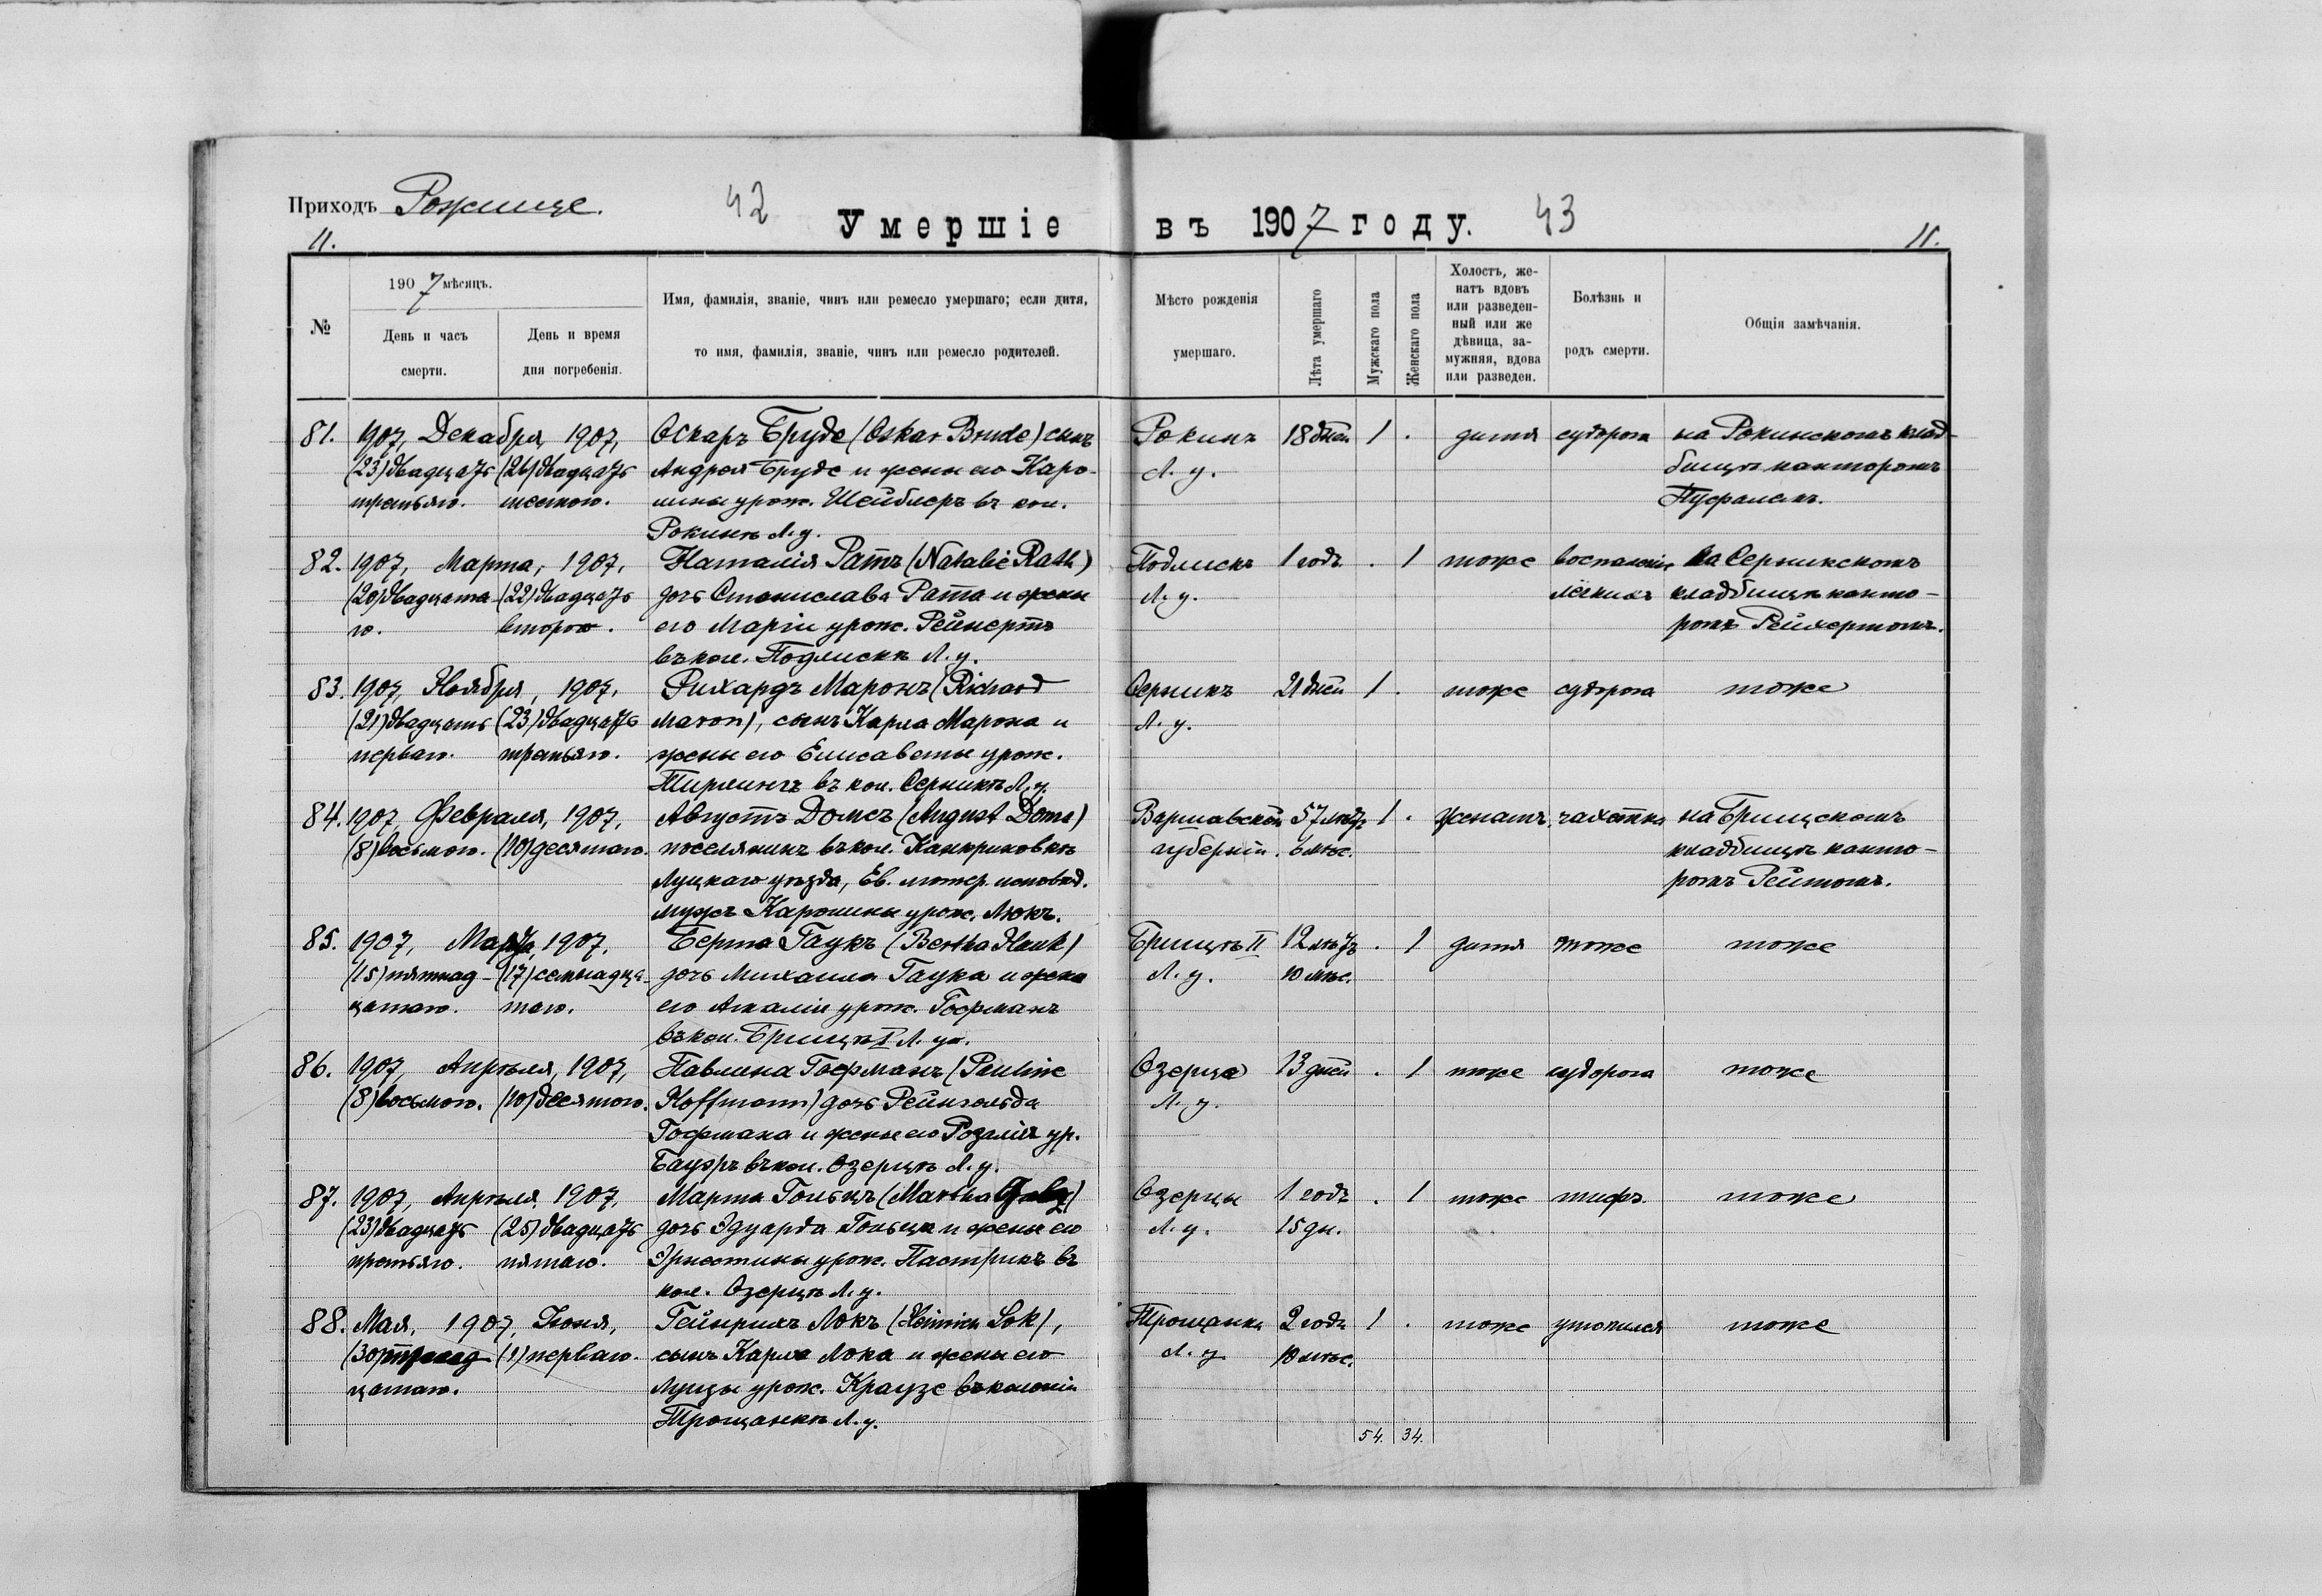 Приходъ Рожище.
42
Умершіе
въ 1907 году.
43
11.
11.
№
1907 мѣсяцъ.
День и часъ
смерти.
День и время
дня погребенія.
Имя, фамилія, званіе, чинъ или ремесло умершаго; если дитя,
то имя, фамилія, званіе, чинъ или ремесло родителей.
Мѣсто рожденія
умершаго.
Лѣта умершаго
Мужскаго пола
Женскаго пола
Холостъ, же-
натъ вдовъ
или разведен-
ный или же
дѣвица, за-
мужняя, вдова
или разведен.
Болѣзнь и
родъ смерти.
Общія замѣчанія.
81. 1907, Декабря, 1907, Оскаръ Бруде (Oskar Brude) сынъ Рокинъ 18 дней 1 . дитя судорога на Рокинскомъ клад-
(23) двадцать (26) двадцать Андрея Бруде и жены его Каро- Л. у. бищѣ канторомъ
третьяго. шестого. лины урож. Шейблеръ въ кол.
Рокинѣ Л. у.
82. 1907, Марта, 1907, Наталія Ратъ (Natalie Rath) Подлискъ 1 годъ . 1 тоже воспаленіе на Серникскомъ
(20) двадцата- (22) двадцать дочь Станислава Рата и жены Л. у. легкихъ кладбищѣ канто-
го. второго. его Маріи урож. Рейнертъ ромъ
въ кол. Подлискѣ Л. у.
83. 1907, Ноября, 1907, Рихардъ Маронъ (Richard Серникъ 21 дней 1 . тоже судорога тоже
(21) двадцать (23) двадцать Maron), сынъ Карла Марона и Л. у.
перваго. третьяго. жены его Елисаветы урож.
въ кол. Серникѣ Л. у.
84. 1907 Февраля, 1907, Августъ Домсъ (August Doms) Варшавской 57 лѣтъ 1 . женатъ. чахотка на Брищскомъ
(8) восьмого. (10) десятаго. поселянинъ въ кол. Канкриновкѣ губерніи. 6 мѣс. кладбищѣ канто-
Луцкаго уѣзда, Ев. лютер. исповѣд. ромъ
мужъ Каролины урож. Люкъ.
85. 1907, Марта, 1907, Берта Гаукъ (Bertha Hauk) Брищѣ II 12 лѣтъ . 1 дитя тоже тоже
(15) пятнад- (17) семнадца- дочь Михаила Гаука и жены Л. у. 10 мѣс.
цатаго. таго. его Амаліи урож. Гофманъ
въ кол. Брищѣ I Л. у.
86. 1907, Апрѣля, 1907, Павлина Гофманъ (Pauline Озерце 13 дней . 1 тоже судорога тоже
(8) восьмого. (10) десятого. Hoffmann) дочь Рейнгольда Л. у.
Гофмана и жены его Розаліи ур.
Бауэръ въ кол. Озерцѣ Л. у.
87. 1907, Апрѣля, 1907, Марта Гольцъ (Martha Golz) Озерцы 1 годъ . 1 тоже тифъ тоже
(23) двадцать (25) двадцать дочь Эдуарда Гольца и жены его Л. у. 15 дн.
третьяго. пятаго. Эрнестины урож. Пастрикъ въ
кол. Озерцѣ Л. у.
88. Мая, 1907, Іюня, Гейнрихъ Локъ (Heinrich Lok), Трощанка 2 года 1 . тоже утопился тоже
(30) (1) перваго. сынъ Карла Лока и жены его Л. у. 10 мѣс.
цатаго. Луизы урож. Краузе въ колоніи
Трощанкѣ Л. у.
54. 34.